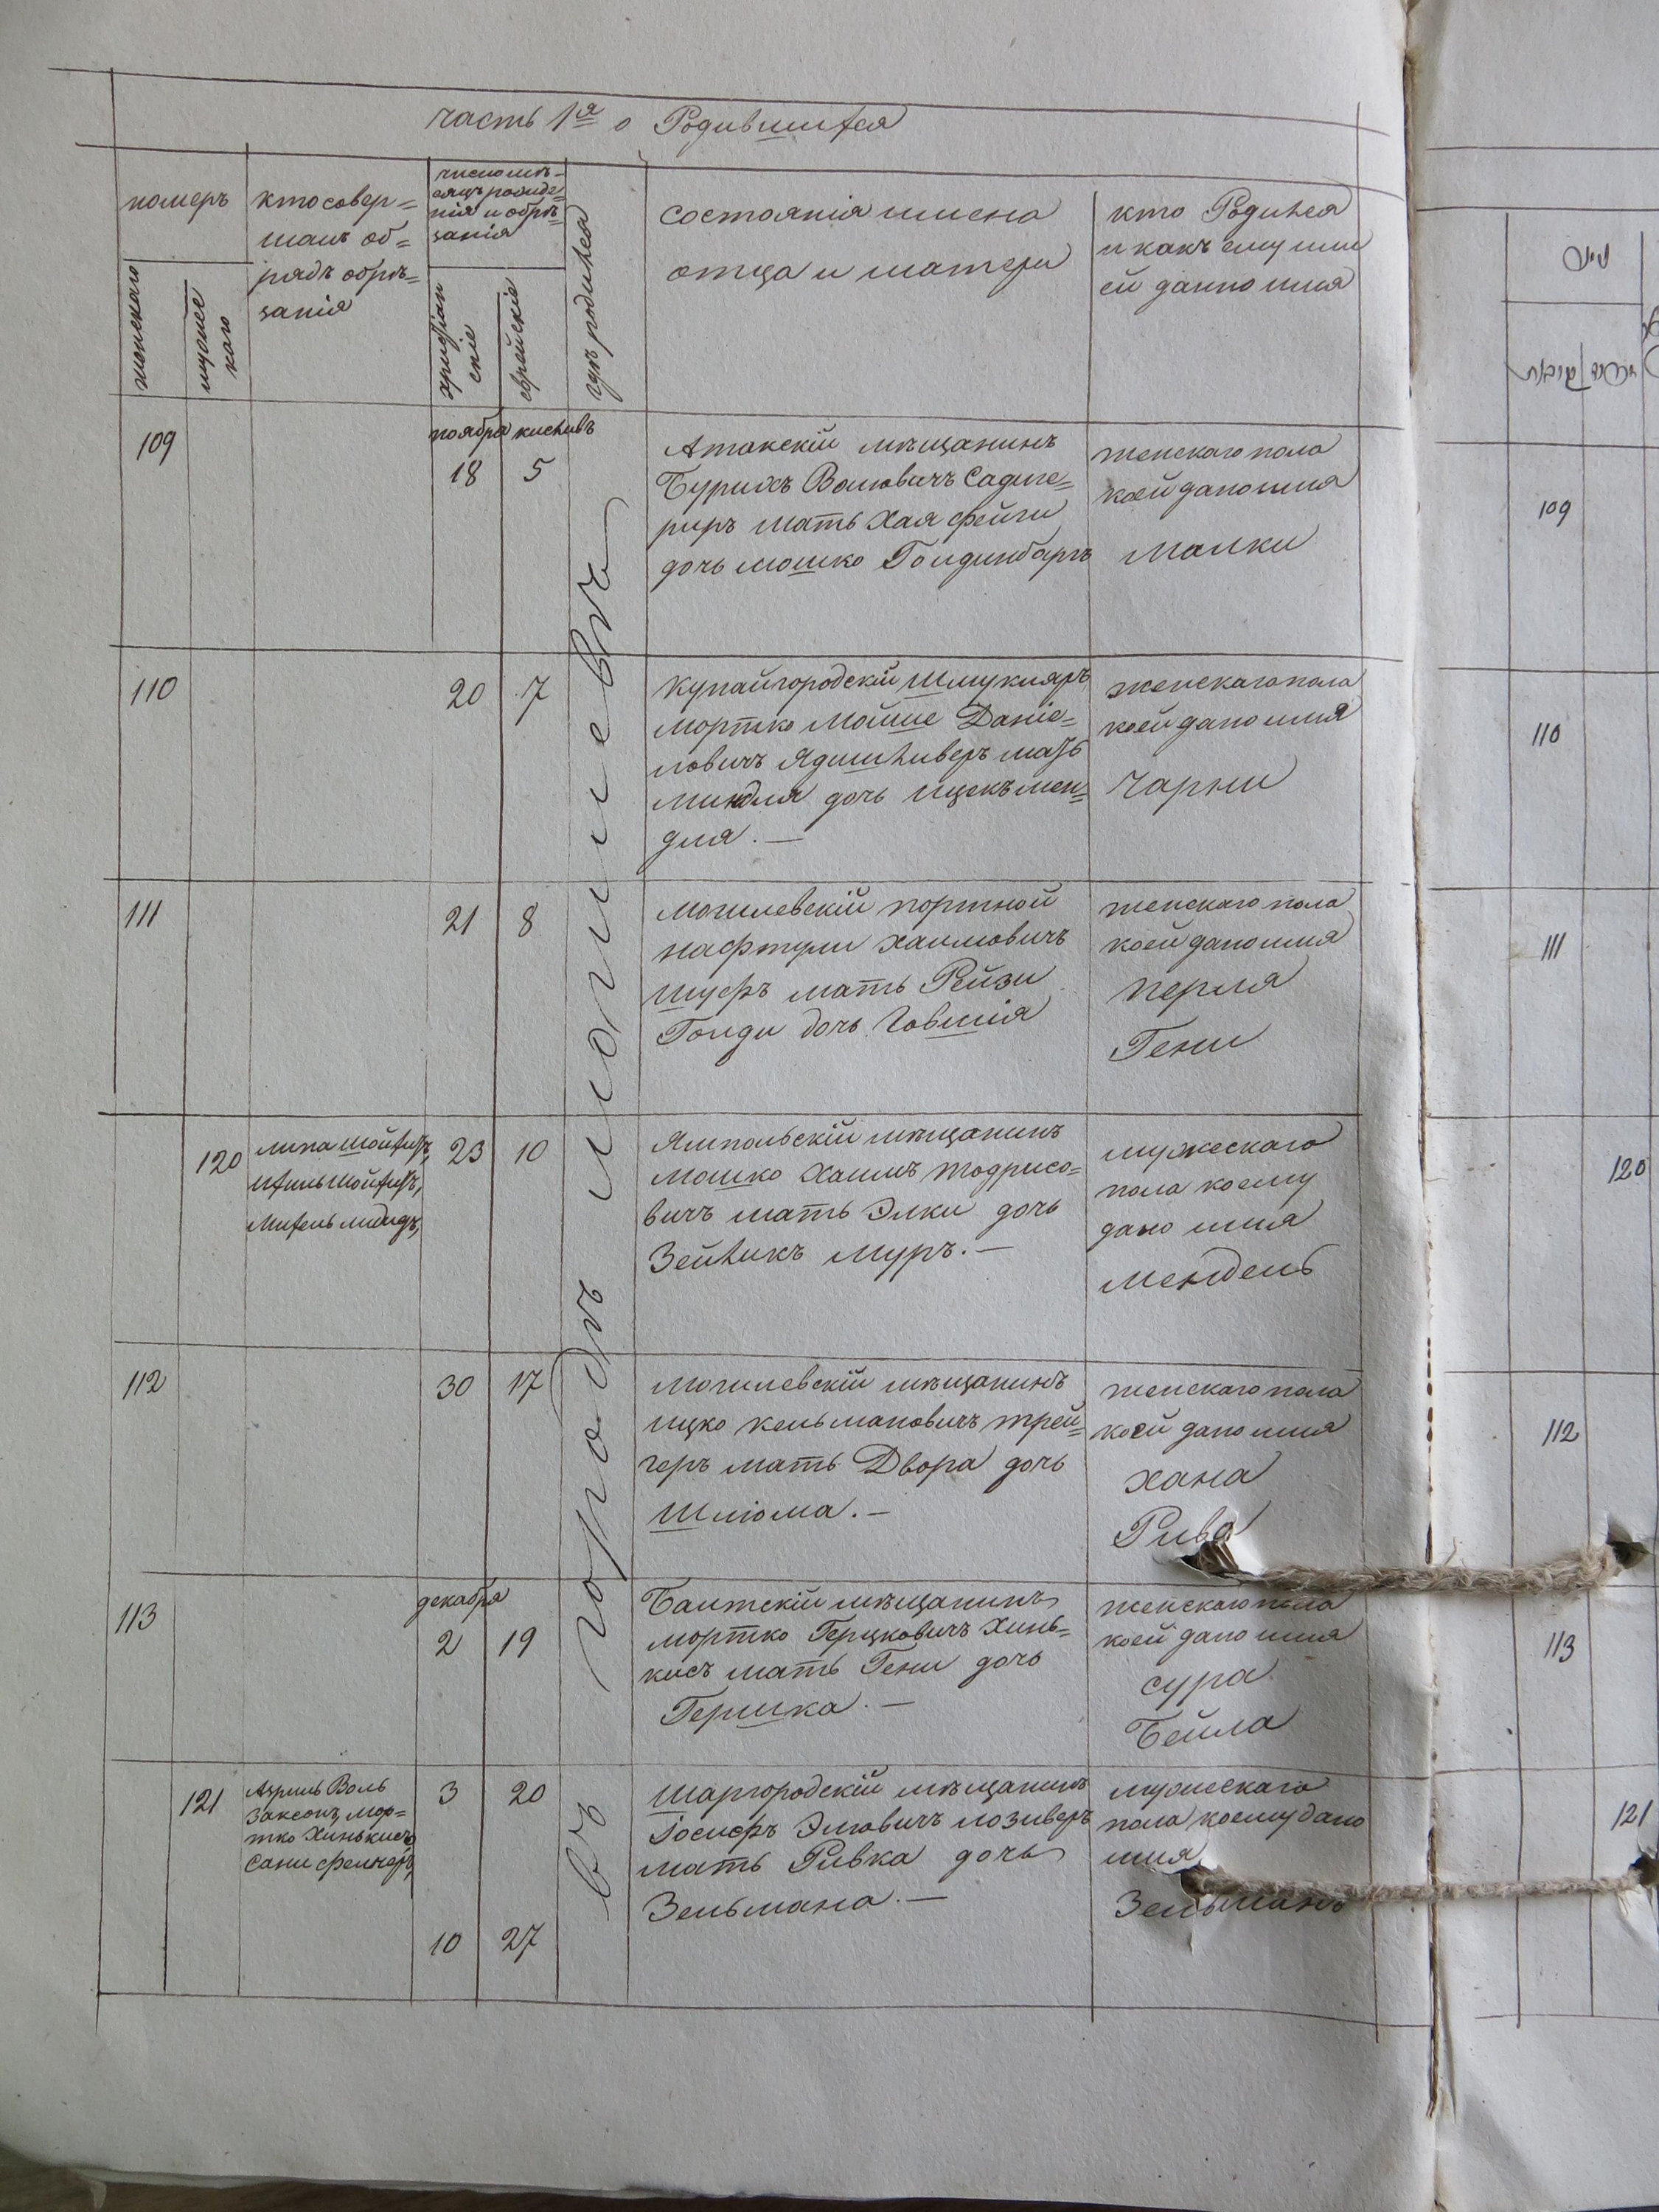 часть 1я о Родившихся
номеръ
женскаго
мужес
каго
кто совер=
шалъ об=
рядъ обрѣ=
занія
число мѣ=
сяцъ рожде=
нія и обрѣ=
занія
христіан
скіе
еврейскіе
гдѣ родился
состоянія имена
отца и матери
кто Родился
и какъ ему или
ей данно имя
въ городѣ могилевѣ
109
ноября кисливъ
18 5
Атакскій мѣщанинъ
Бурихъ Волювичъ Садиге=
риръ мать Хая фейги
дочь мошко Голдинбаргъ
женскаго пола
коей дано имя
Малки
110
20 7
Купайгородскій шмукляръ
мортко мойше Даніе=
ловичъ Ядишливеръ мать
миндля дочь ицекъ мен=
для. —
женскаго пола
коей дано имя
Чарни
111
21 8
могилевскій портной
нафтули хаимовичъ
шуфъ мать Рейзи
Голди дочь Говшія
женскаго пола
коей дано имя
перля
Гени
120
23 10
Ямпольскій мѣщанинъ
мошко Хаимъ тодрисо=
вичъ мать Элки дочь
Зейликъ муръ. —
мужескаго
пола коему
дано имя
мендель
112
30 17
могилевскій мѣщанинъ
ицко кельмановичъ трей=
геръ мать Двора дочь
Шліома. —
женскаго пола
коей дано имя
хана
Рива
113
декабря
2 19
Балтскій мѣщанинъ
мортко Герцковичъ Хинь=
кисъ мать Гени дочь
Гершка. —
женскаго пола
коей дано имя
сура
Бейла
121
Азриль Воль
Заксонъ, мор=
тко Хинькисъ,
Сани фелчеръ,
3 20
10 27
Шаргородскій мѣщанинъ
Іосифъ Эловичъ лозиверъ
мать Ривка дочь
Зельмана. —
мужескаго
пола коему дано
имя
Зельманъ
109
110
111
120
112
113
121